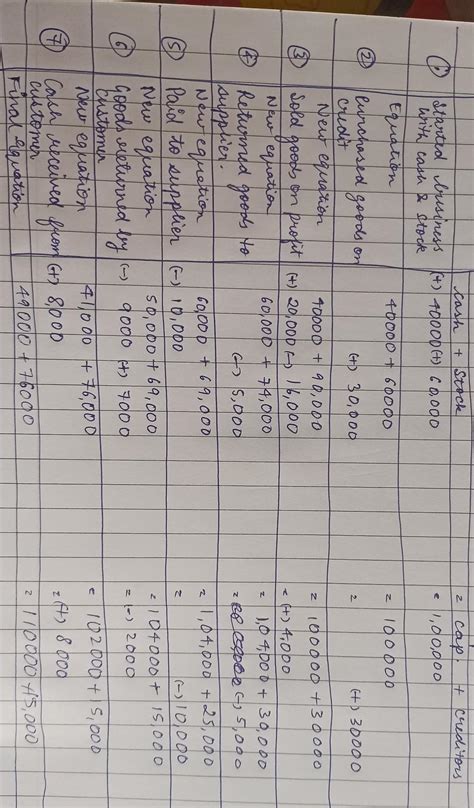 Cash + Stock = Cap. + Creditors
① Started business with cash & stock (+) 40000 (+) 60,000 = 1,00,000
Equation 40000 + 60000 = 100000
② Purchased goods on credit (+) 30,000 = (+) 30000
New equation 40000 + 90,000 = 100000 + 30000
③ Sold goods on profit (+) 20,000 (-) 16,000 = (+) 4,000
New equation 60,000 + 74,000 = 1,04,000 + 30,000
④ Returned goods to supplier. (-) 5,000 = (-) 5,000
New equation 60,000 + 69,000 = 1,04,000 + 25,000
⑤ Paid to supplier (-) 10,000 = (-) 10,000
New equation 50,000 + 69,000 = 104000 + 15,000
⑥ Goods returned by customer (-) 9000 (+) 7000 = (-) 2000
New equation 41,000 + 76,000 = 102000 + 15,000
⑦ Cash received from customer (+) 8000 = (+) 8000
Final Equation 49000 + 76000 = 110000 + 15,000